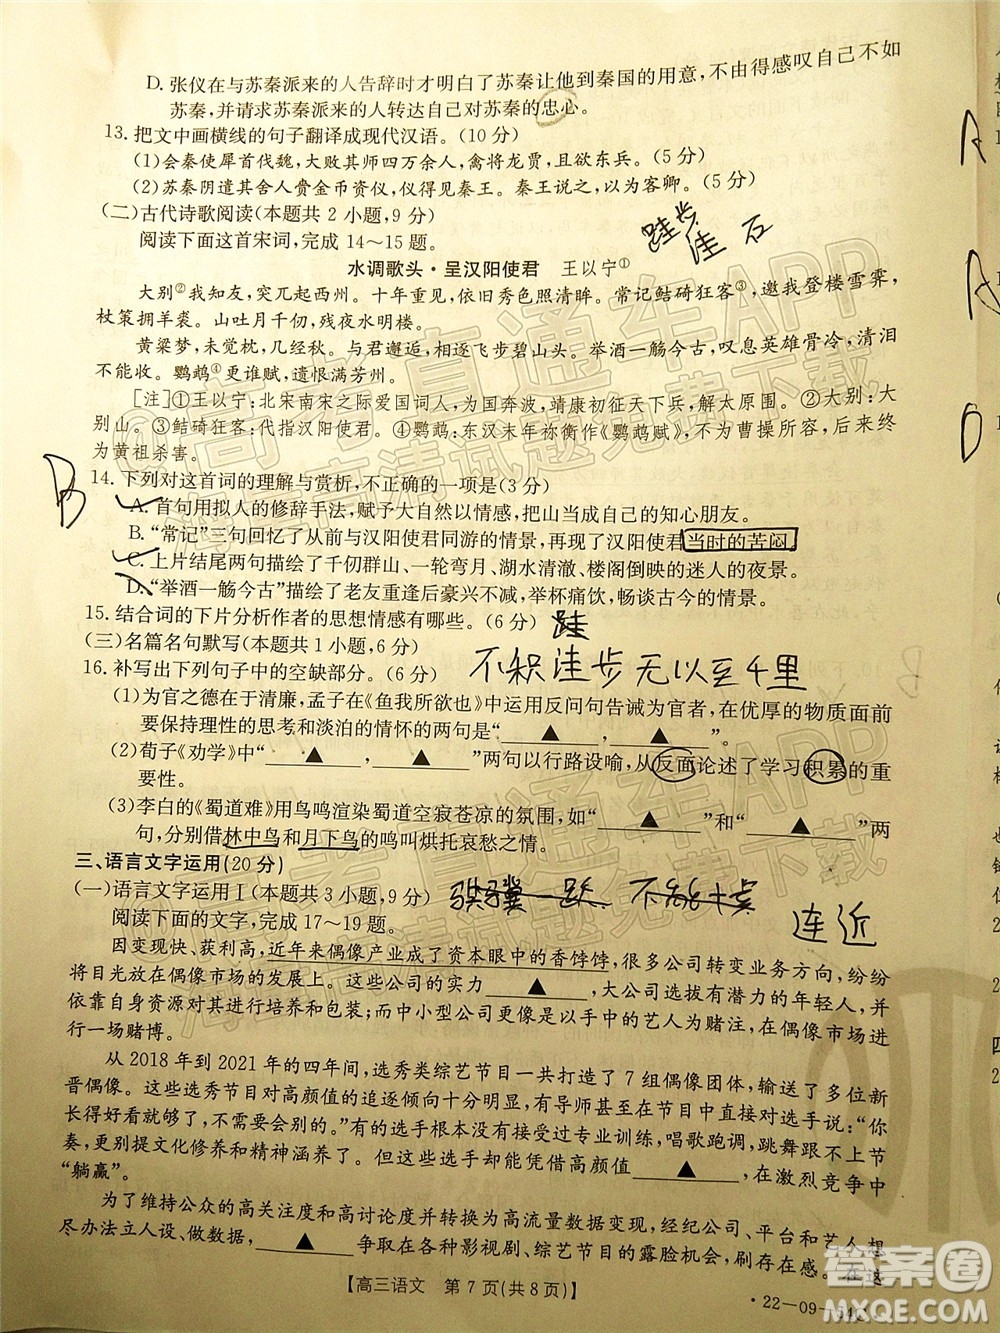 D. 张仪在与苏秦派来的人告辞时才明白了苏秦让他到秦国的用意，不由得感叹自己不如
苏秦，并请求苏秦派来的人转达自己对苏秦的忠心。
13. 把文中画横线的句子翻译成现代汉语。(10 分)
(1)会秦使犀首伐魏，大败其师四万余人，禽将龙贾，且欲东兵。(5 分)
(2)苏秦阴遣其舍人赍金币资仪，仪得见秦王。秦王说之，以为客卿。(5 分)
(二)古代诗歌阅读(本题共 2 小题，9 分)
阅读下面这首宋词，完成 14～15 题。
跬步
洼 石
水调歌头·呈汉阳使君 王以宁①
大别②我知友，突兀起西州。十年重见，依旧秀色照清眸。常记鲒碕狂客③，邀我登楼雪霁，
杖策拥羊裘。山吐月千仞，残夜水明楼。
黄粱梦，未觉枕，几经秋。与君邂逅，相逐飞步碧山头。举酒一觞今古，叹息英雄骨冷，清泪
不能收。鹦鹉④更谁赋，遗恨满芳州。
[注]①王以宁：北宋南宋之际爱国词人，为国奔波，靖康初征天下兵，解太原围。②大别：大
别山。③鲒碕狂客：代指汉阳使君。④鹦鹉：东汉末年祢衡作《鹦鹉赋》，不为曹操所容，后来终
为黄祖杀害。
B
14. 下列对这首词的理解与赏析，不正确的一项是(3 分)
A. 首句用拟人的修辞手法，赋予大自然以情感，把山当成自己的知心朋友。
B. “常记”三句回忆了从前与汉阳使君同游的情景，再现了汉阳使君当时的苦闷。
C. 上片结尾两句描绘了千仞群山、一轮弯月、湖水清澈、楼阁倒映的迷人的夜景。
D. “举酒一觞今古”描绘了老友重逢后豪兴不减，举杯痛饮，畅谈古今的情景。
15. 结合词的下片分析作者的思想情感有哪些。(6 分)
跬
(三)名篇名句默写(本题共 1 小题，6 分)
16. 补写出下列句子中的空缺部分。(6 分)
不积洼步 无以至千里
(1)为官之德在于清廉，孟子在《鱼我所欲也》中运用反问句告诫为官者，在优厚的物质面前
要保持理性的思考和淡泊的情怀的两句是“▲，▲”。
(2)荀子《劝学》中“▲，▲”两句以行路设喻，从反面论述了学习积累的重
要性。
(3)李白的《蜀道难》用鸟鸣渲染蜀道空寂苍凉的氛围，如“▲”和“▲”两
句，分别借林中鸟和月下鸟的鸣叫烘托哀愁之情。
三、语言文字运用(20 分)
(一)语言文字运用Ⅰ(本题共 3 小题，9 分)
骐骥一跃 不能十步
连近
阅读下面的文字，完成 17～19 题。
因变现快、获利高，近年来偶像产业成了资本眼中的香饽饽，很多公司转变业务方向，纷纷
将目光放在偶像市场的发展上。面对偶像市场的这块大▲，大公司选拔有潜力的年轻人，并
依靠自身资源对其进行培养和包装；而中小型公司更像是以手中的艺人为赌注，在偶像市场进
行一场赌博。
从 2018 年到 2021 年的四年间，选秀类综艺节目一共打造了 7 组偶像团体，输送了多位新
晋偶像。这些选秀节目对高颜值的追逐倾向十分明显，有位导师甚至在节目中直接对选手说：“你
长得好看就可以了，不需要会别的。”有的选手根本没有接受过专业训练，唱歌跑调，跳舞跟不上节
奏，更别提文化修养和精神涵养了。但这些选手却能凭借高颜值▲，在激烈竞争中
“躺赢”。
为了维持公众的高关注度和高讨论度并转换为高流量数据变现，经纪公司、平台和艺人想
尽办法立人设、做数据，▲争取在各种影视剧、综艺节目的露脸机会，刷存在感。在这
【高三语文 第 7 页(共 8 页)】
·22-09-
@高考直通车APP
海量高清试题免费下载
答案圈
MXQE.COM